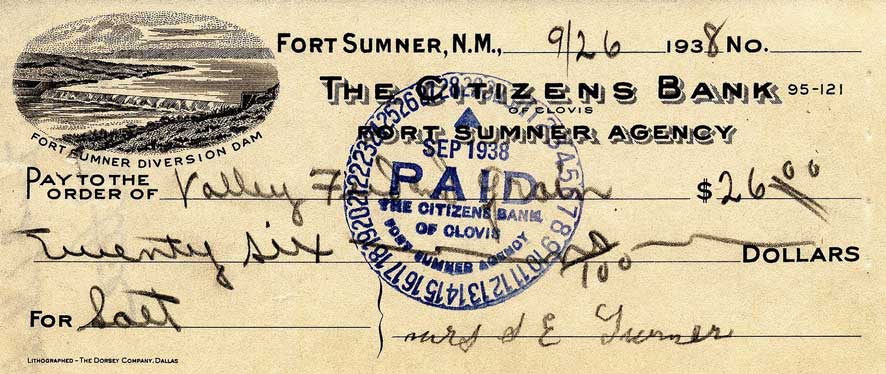 FORT SUMNER, N.M., 9/26 1938 NO.
THE CITIZENS BANK 95-121
OF CLOVIS
FORT SUMNER AGENCY
FORT SUMNER DIVERSION DAM
PAY TO THE ORDER OF Valley Feed and Grain $26 00
Twenty six no/100 DOLLARS
FOR Salt
Mrs S E Turner
LITHOGRAPHED – THE DORSEY COMPANY, DALLAS
SEP 1938
PAID
THE CITIZENS BANK
OF CLOVIS
FORT SUMNER AGENCY
3 4 5 6 7 8 9 10 11 12 13 14 15 16 17 18 19 20 21 22 23 24 25 26 27 28 29